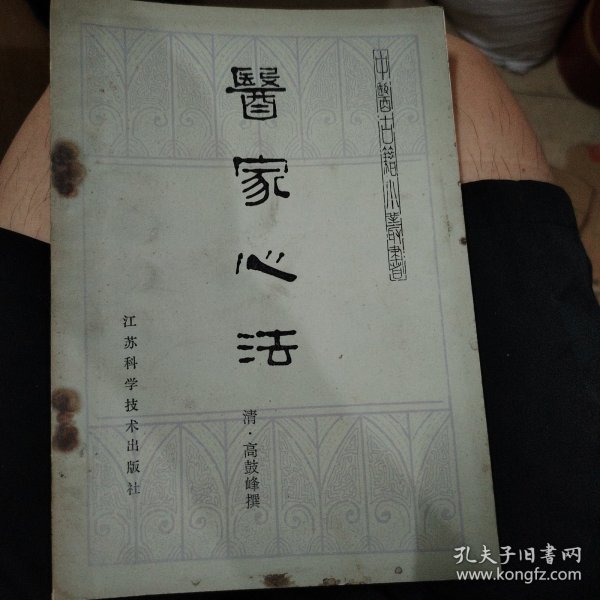 中醫古籍小叢書
醫家心法
清·高鼓峰撰
江苏科学技术出版社
孔夫子旧书网
www.kongfz.com